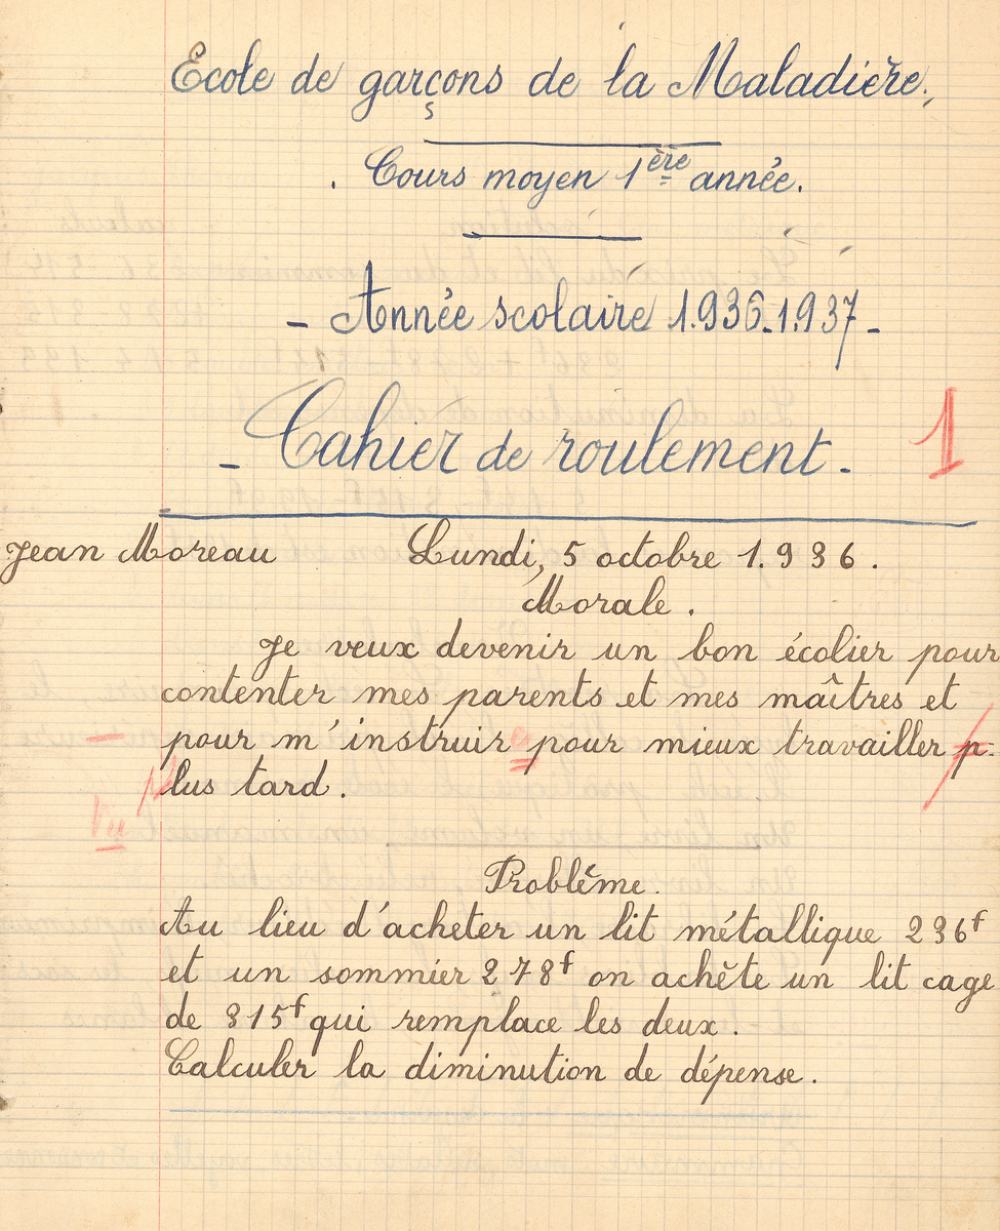 Ecole de garçons de la Maladière.
Cours moyen 1ère année.
- Année scolaire 1.936-1.937 -
- Cahier de roulement. -
1
Jean Moreau Lundi, 5 octobre 1.936.
Morale.
Je veux devenir un bon écolier pour
contenter mes parents et mes maîtres et
pour m'instruir e pour mieux travailler p-
lus tard.
Vu
Problème.
Au lieu d'acheter un lit métallique 236f
et un sommier 278f on achète un lit cage
de 315f qui remplace les deux.
Calculer la diminution de dépense.